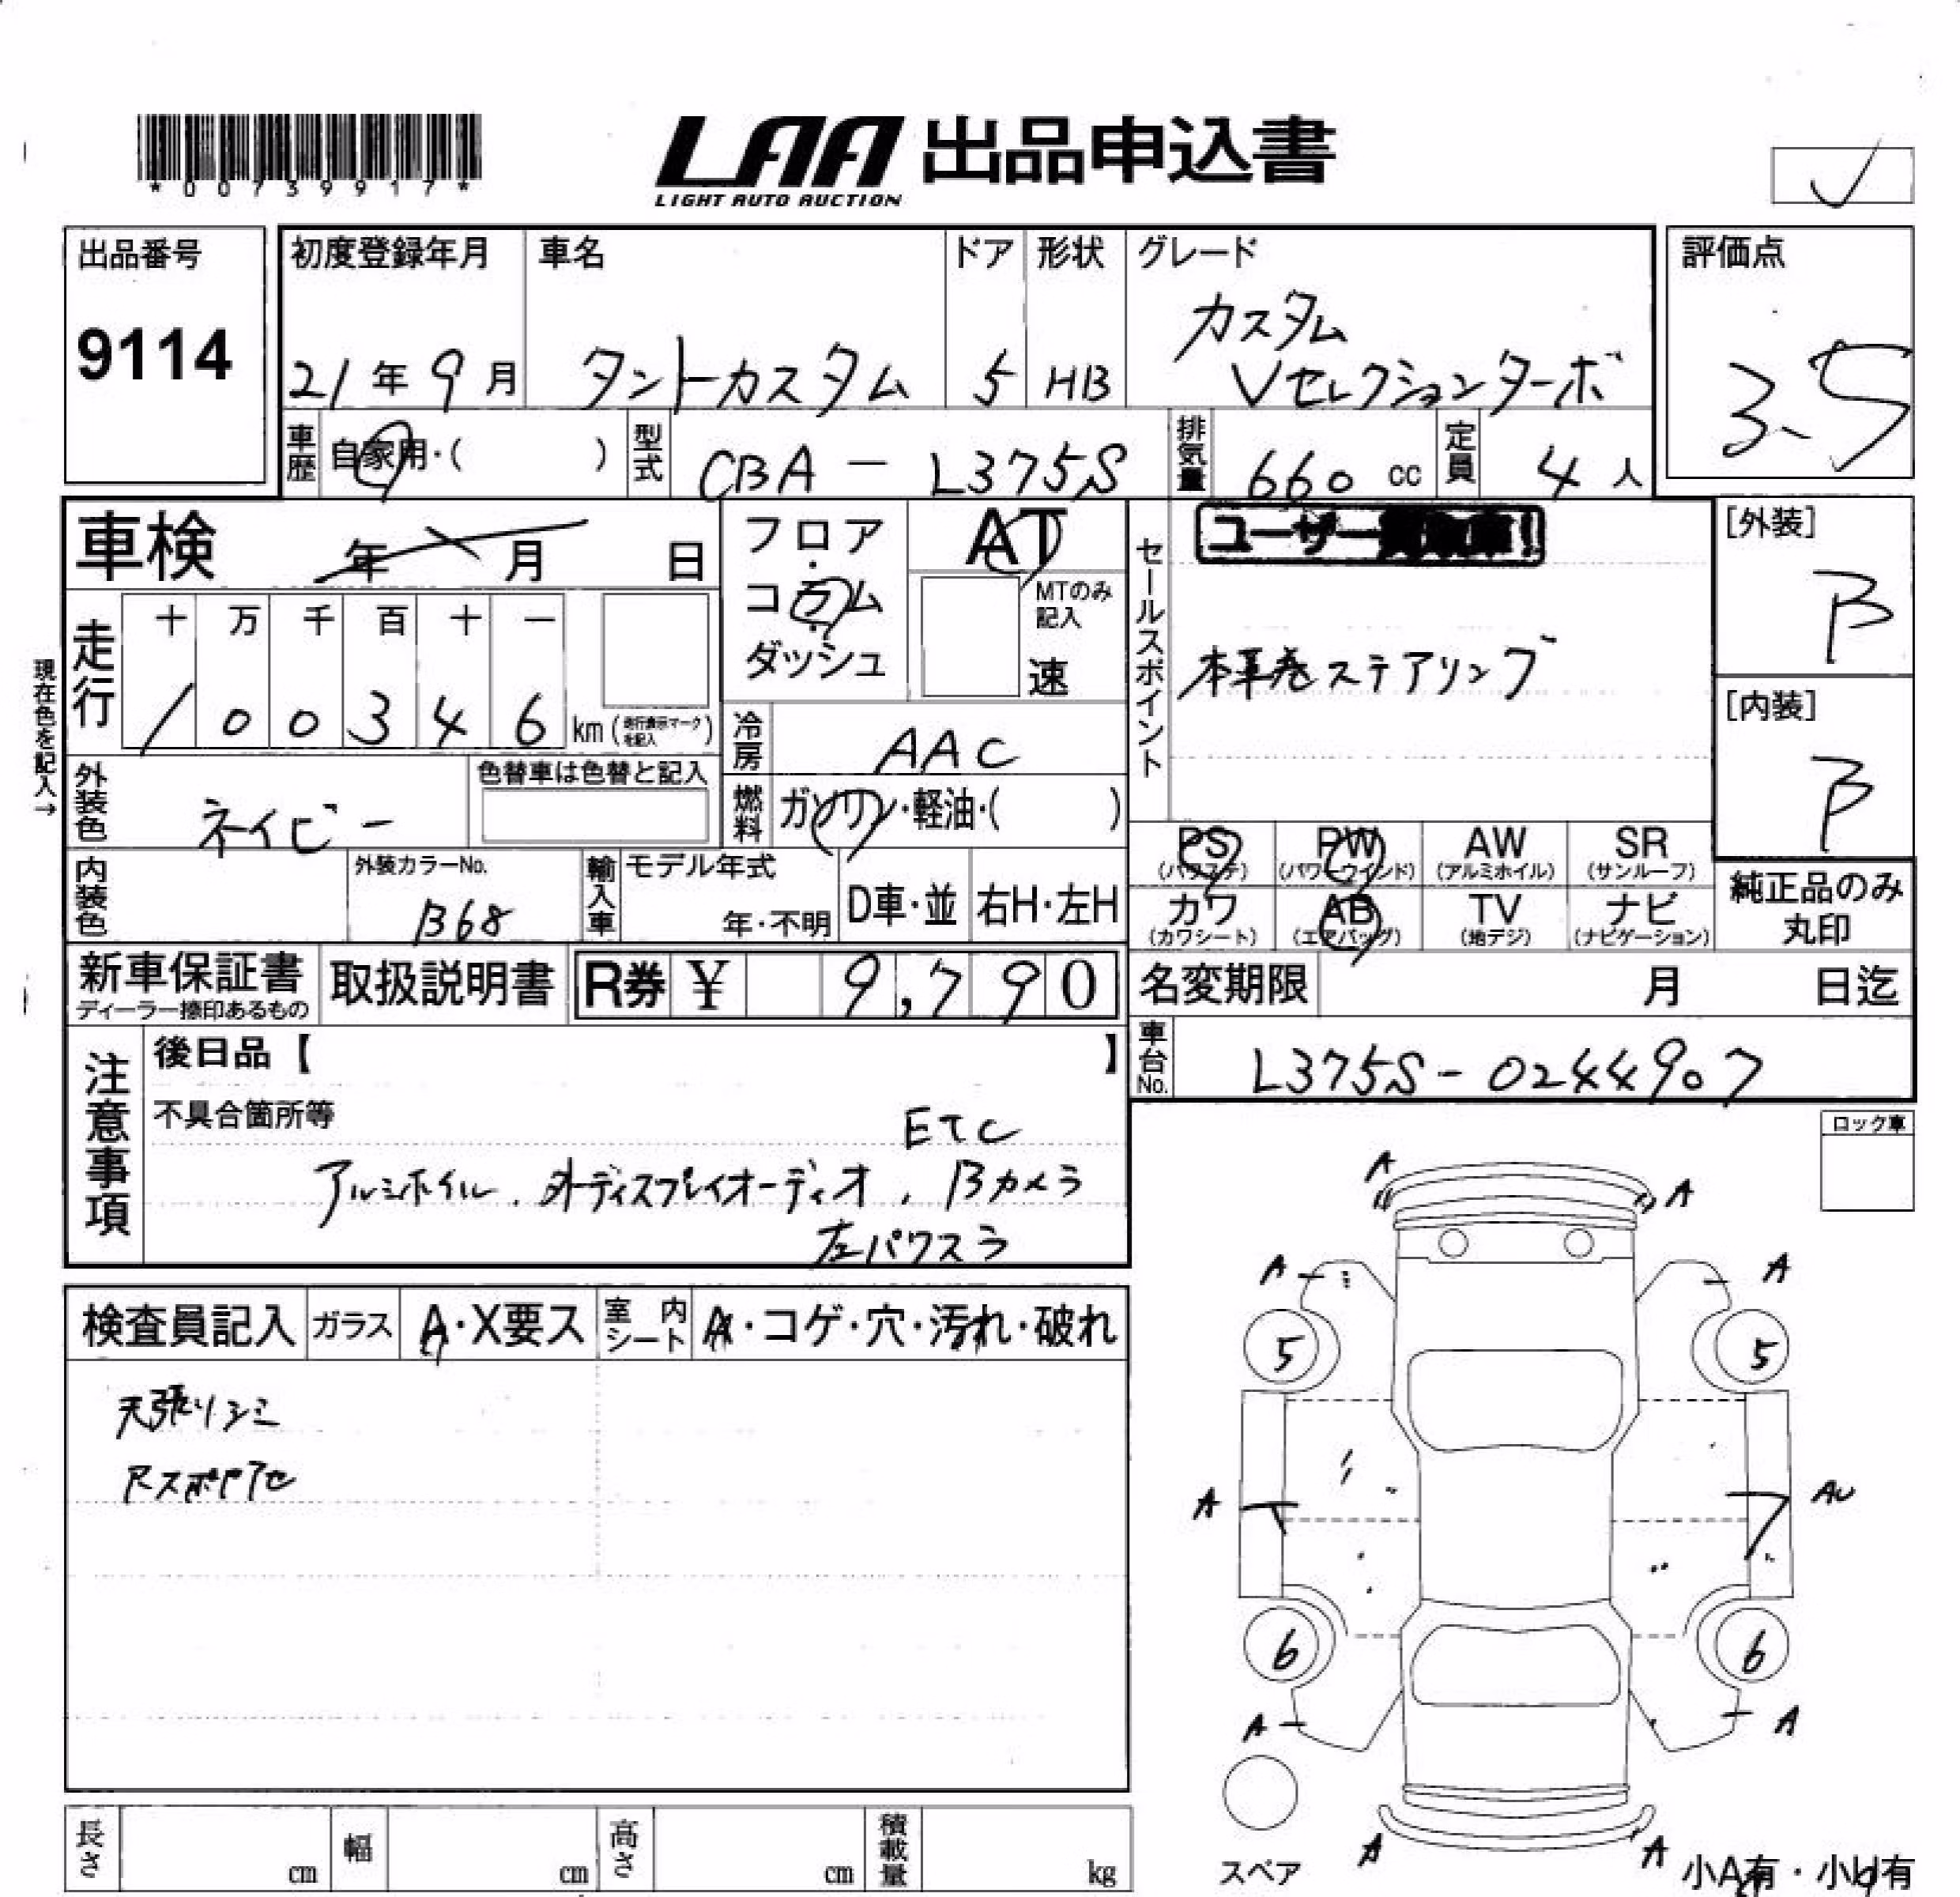 *00739917*
LAA 出品申込書
LIGHT AUTO AUCTION
出品番号
9114
初度登録年月
21年9月
車名
タントカスタム
ドア
5
形状
HB
グレード
カスタム
Vセレクションターボ
評価点
3.5
車歴 自家用・( )
型式 CBA-L375S
排気量 660 cc
定員 4 人
車検 年 月 日
フロア・コラム・ダッシュ
AT
MTのみ記入
速
セールスポイント
ユーザー
本革巻ステアリング
[外装]
B
[内装]
B
現在色を記入→
走行
十 万 千 百 十 一
1 0 0 3 4 6 km (走行表示マークを記入)
冷房 AAC
外装色 ネイビー
色替車は色替と記入
燃料 ガソリン・軽油・( )
PS (パワステ)
PW (パワーウインド)
AW (アルミホイル)
SR (サンルーフ)
カワ (カワシート)
AB (エアバッグ)
TV (地デジ)
ナビ (ナビゲーション)
純正品のみ丸印
内装色
外装カラーNo.
B68
輸入車
モデル年式
年・不明
D車・並
右H・左H
新車保証書
ディーラー捺印あるもの
取扱説明書
R券 ¥ 9,790
名変期限 月 日迄
車台No. L375S-0244907
注意事項
後日品【 】
不具合箇所等
ETC
アルミホイル、外ディスプレイオーディオ、Bカメラ
左パワスラ
ロック車
検査員記入
ガラス A・X要ス
室内シート A・コゲ・穴・汚れ・破れ
天張りシミ
A A
A A
5 5
A AU
6 6
A A
A A
スペア
小A有・小U有
長さ cm
幅 cm
高さ cm
積載量 kg